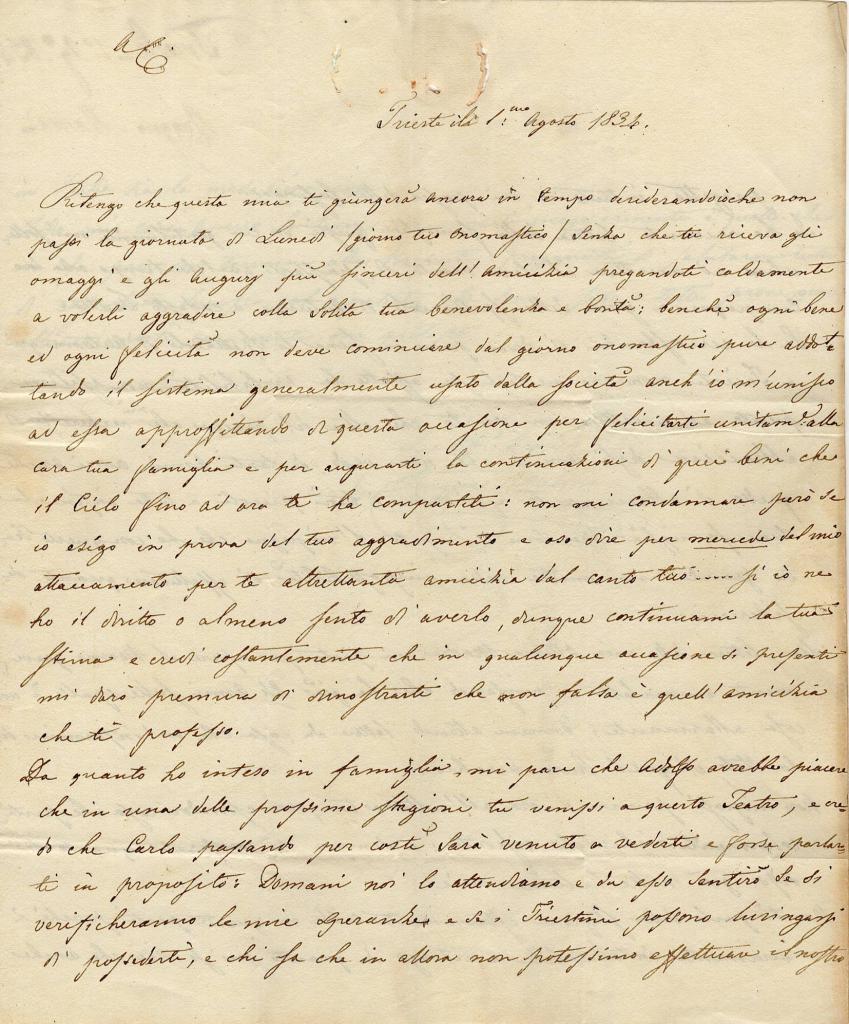 A C.
Trieste il dì 1.mo Agosto 1834.
Ritengo che questa mia ti giungerà ancora in tempo desiderandoiòche non
passi la giornata di Lunedì /giorno tuo onomastico/ senza che tu riceva gli
omaggi e gli Augurj più sinceri dell'Amicizia pregandoti caldamente
a volerli aggradire colla solita tua benevolenza e bontà; benchè ogni bene
ed ogni felicità non deve cominciare dal giorno onomastico pure addot-
tando il sistema generalmente usato dalla società anch'io m'unisco
ad essa approffittando di questa occasione per felicitarti unitam.e alla
cara tua famiglia e per augurarti la continuazioni di quei beni che
il Cielo fino ad ora ti ha compartiti: non mi condannare però se
io esigo in prova del tuo aggradimento e oso dire per mercede del mio
attaccamento per te altrettanta amicizia dal canto tuo..... si iò ne
ho il diritto o almeno sento di averlo, dunque continuami la tua
stima e credi costantemente che in qualunque occasione si presenti
mi darò premura di dimostrarti che non falsa è quell'amicizia
che ti professo.
Da quanto ho inteso in famiglia, mi pare che Adolfo avrebbe piacere
che in una delle prossime stagioni tu venissi a questo Teatro, e cre-
do che Carlo passando per costì sarà venuto a vederti e forse parlar-
ti in proposito: Domani noi lo attendiamo e da esso sentirò se si
verificheranno le mie speranze e se i Triestini possono lusingarsi
di possederti, e chi sa che in allora non potessimo effettuare il nostro